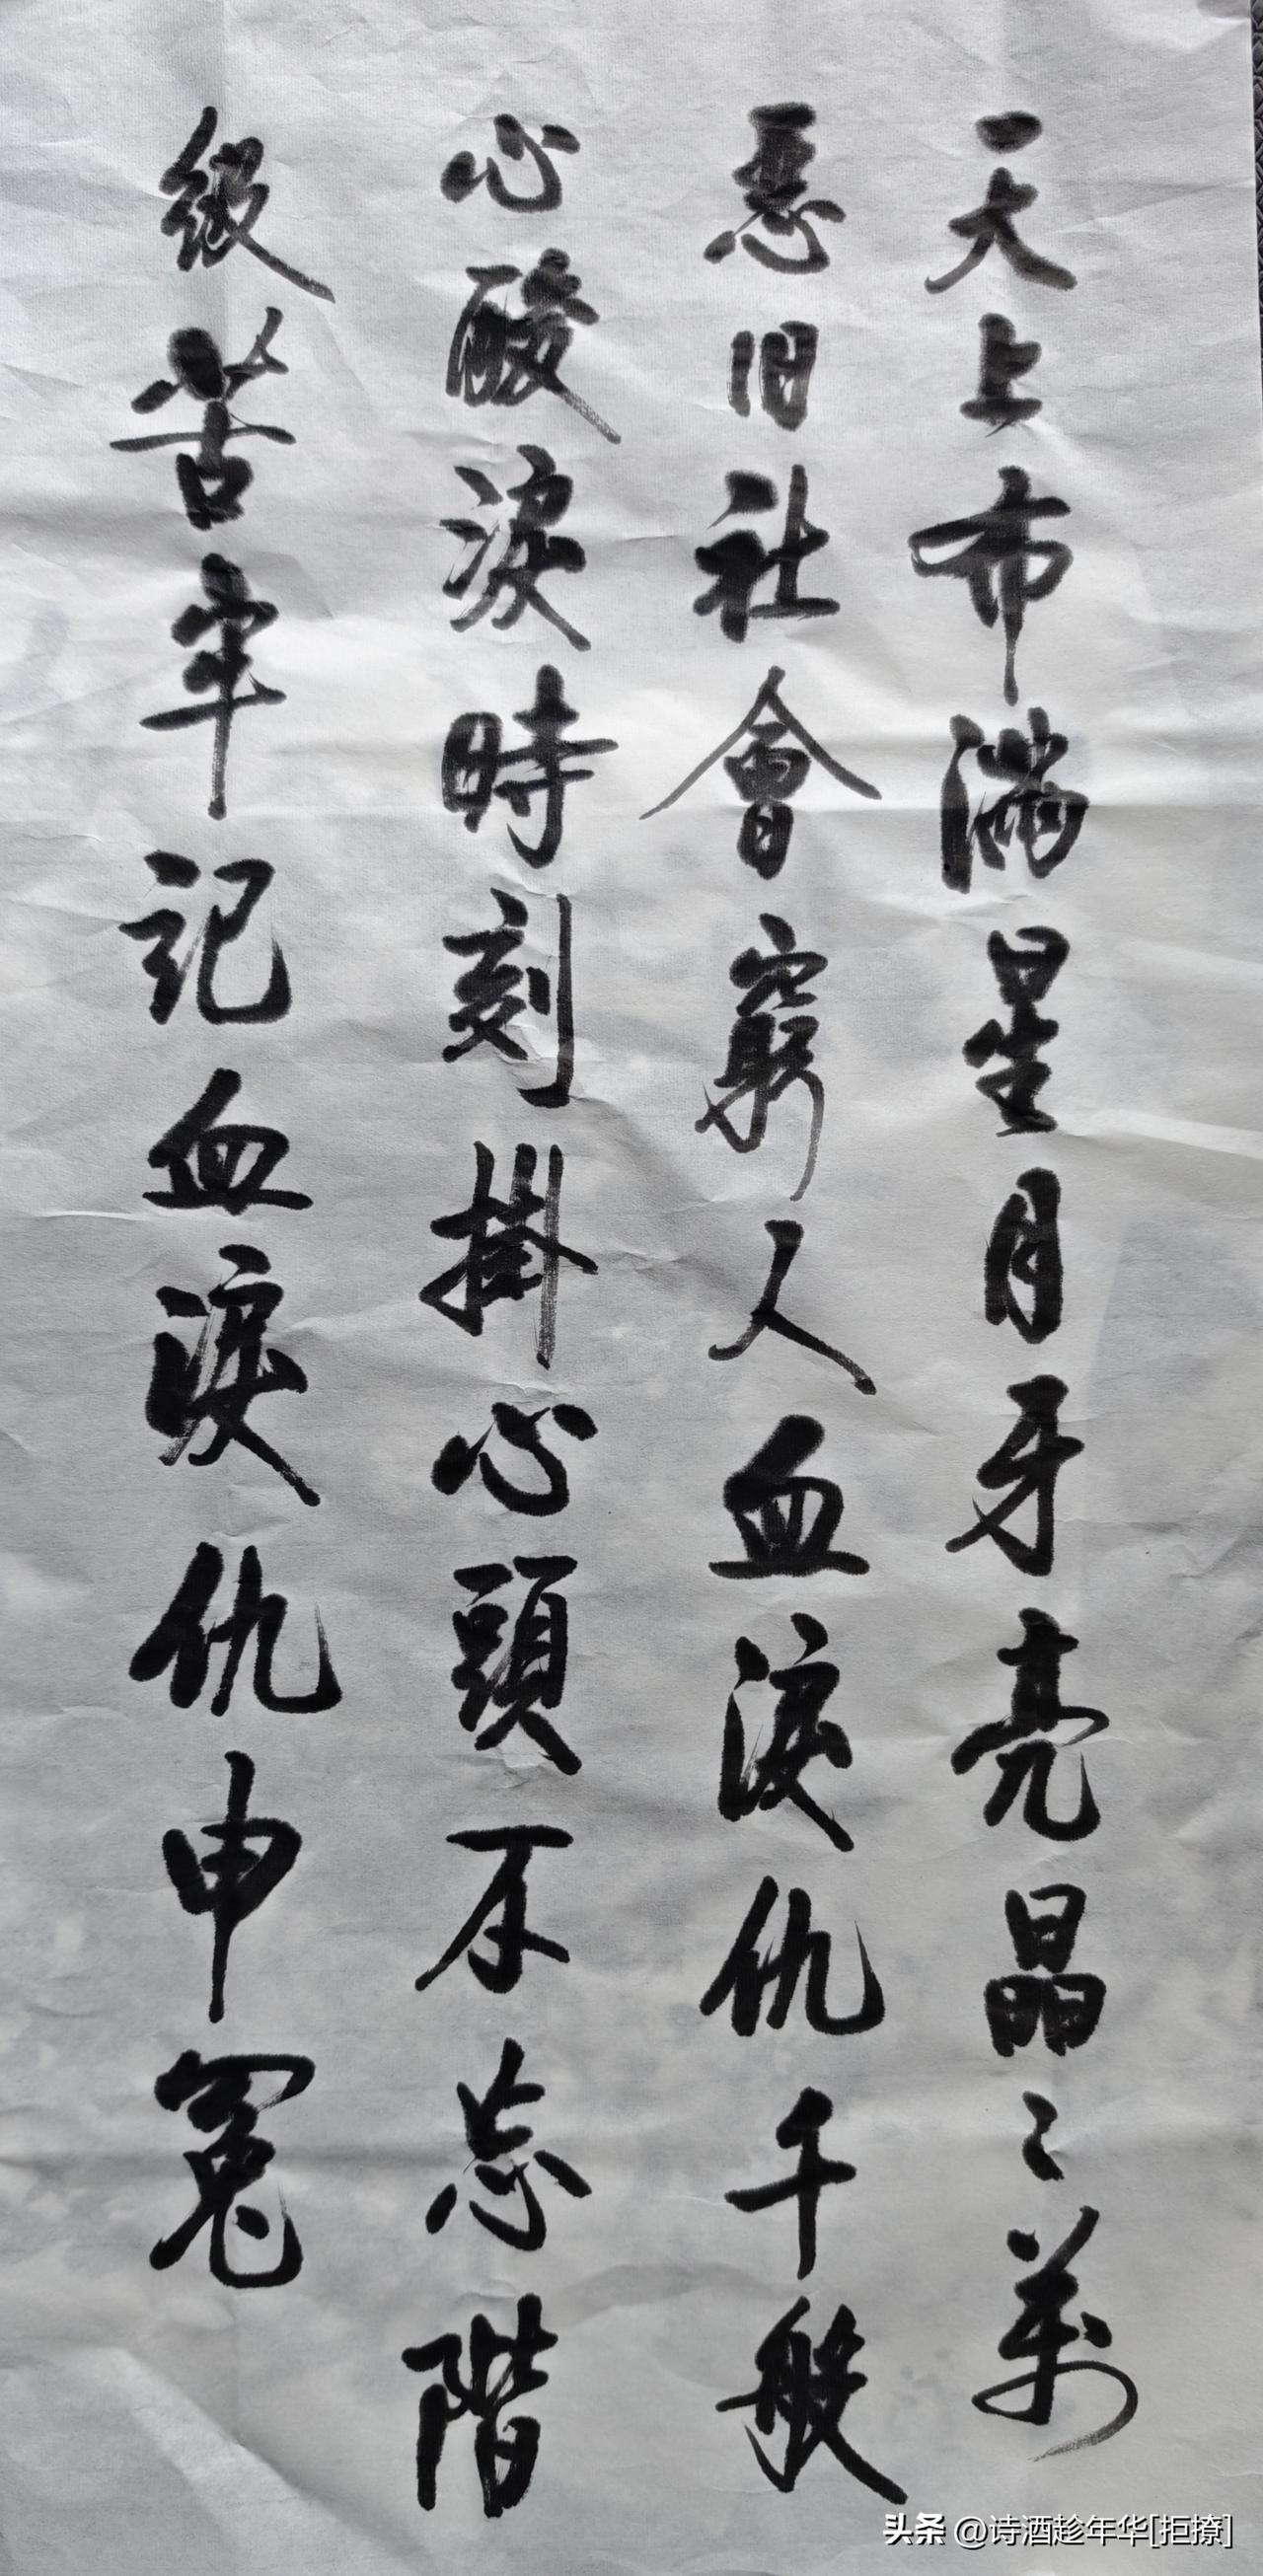 天上布满星月牙亮晶々萬
恶旧社會窮人血淚仇千般
心酸淚時刻掛心頭不忘階
級苦牢記血淚仇申冤
头条 @诗酒趁年华[拒撩]